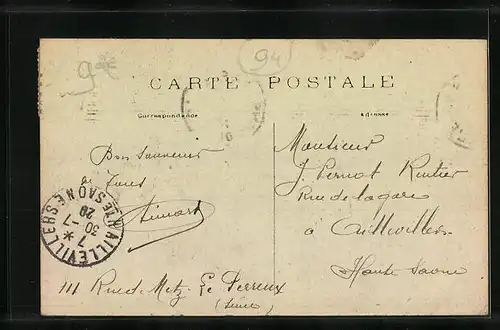 94
CARTE POSTALE
Correspondance
Adresse
Bon Souvenir
de tous
Simard
111 Rue de Metz Le Perreux
(Seine)
Monsieur
J. Pernot Rentier
Rue de la gare
à Aillevillers
Haute Saone
AILLEVILLERS * HTE SAÔNE
7
30-7
20